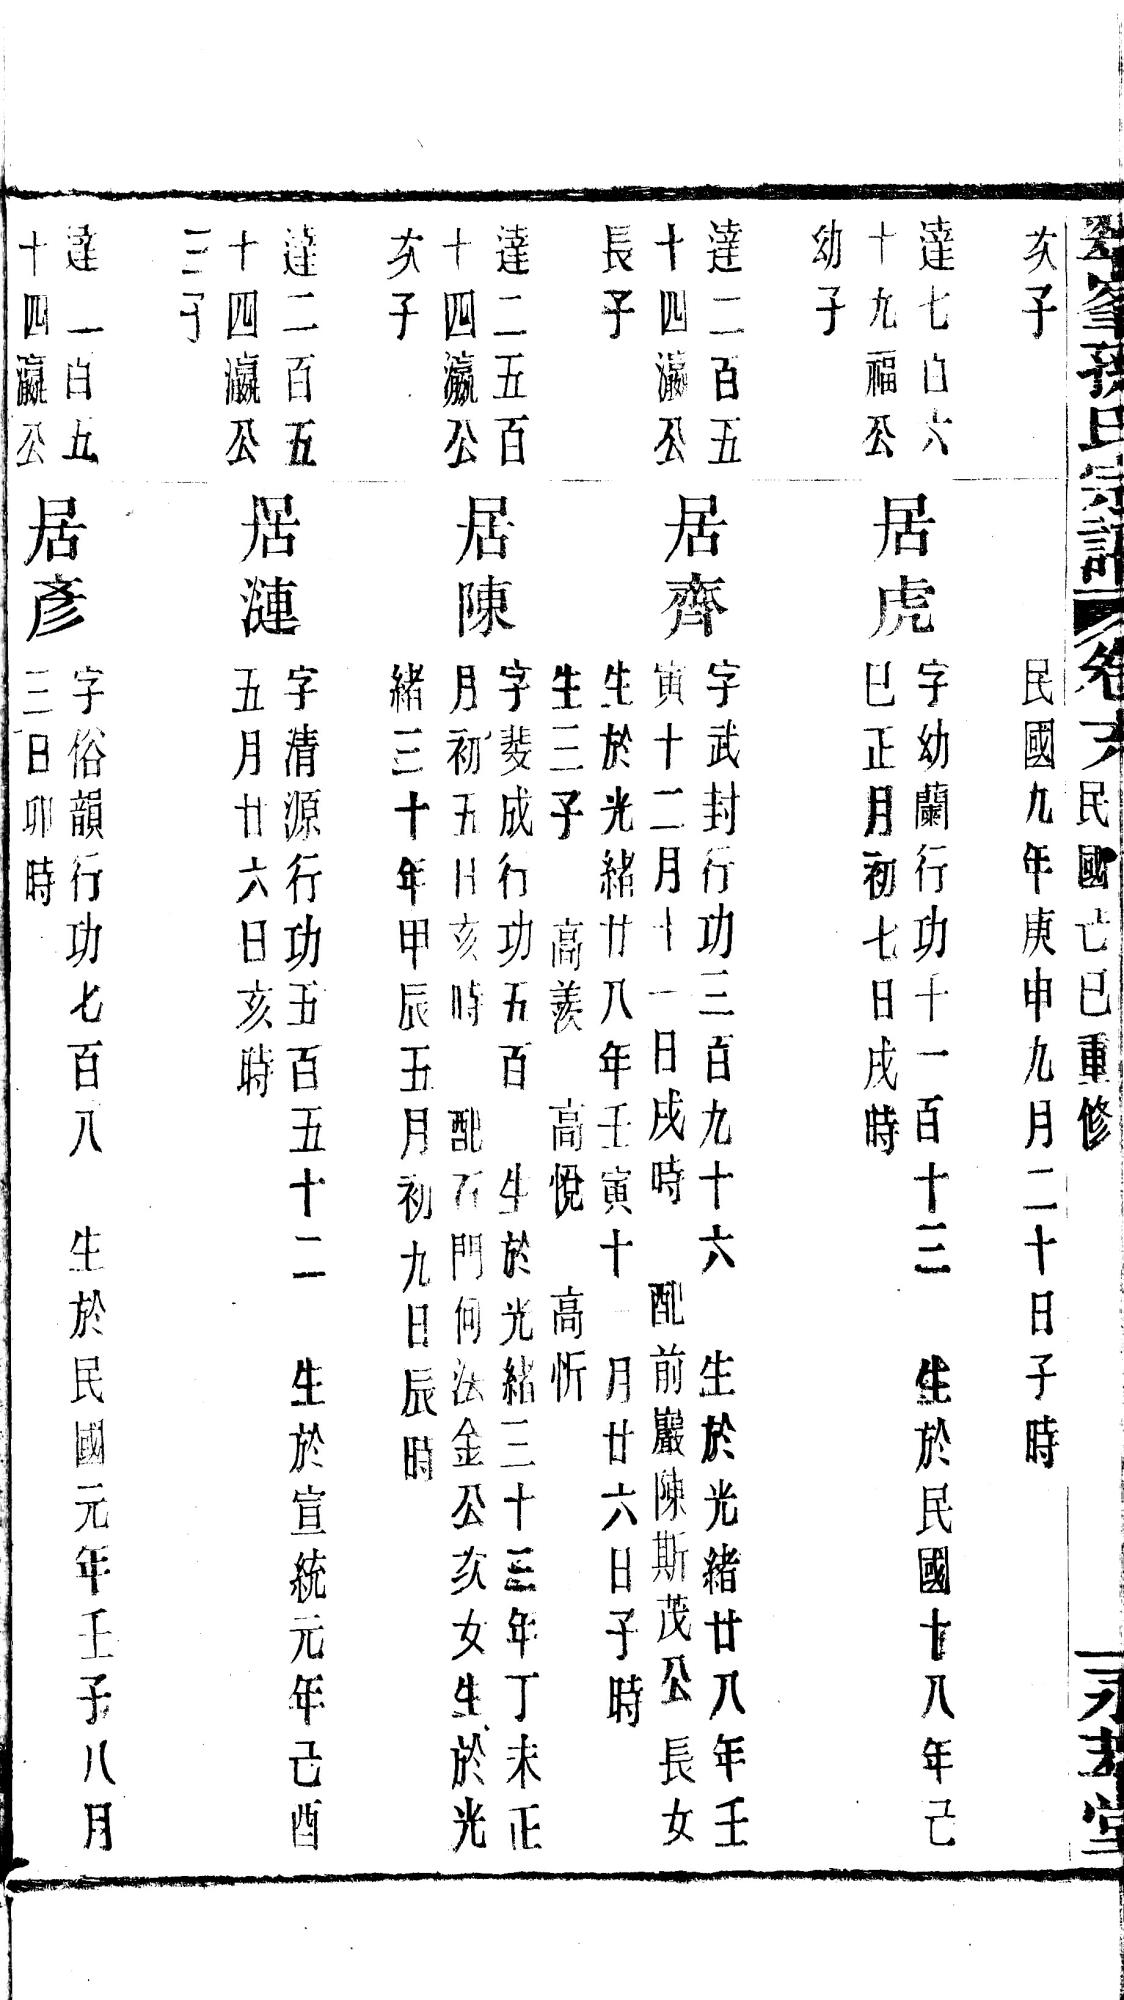 翠峯孫氏宗譜 卷六 民國亡巳重修 永芳堂
次子
民國九年庚申九月二十日子時
達七百六
十九福公
幼子
居虎
字幼蘭行功十一百十三 生於民國十八年己
巳正月初七日戌時
達二百五
十四瀛公
長子
居齊
字武封行功三百九十六 生於光緒廿八年壬
寅十二月十一日戌時 配前巖陳斯茂公長女
生於光緒廿八年壬寅十一月廿六日子時
生三子 高羨 高悅 高忻
達二五百
十四瀛公
次子
居陳
字斐成行功五百 生於光緒三十三年丁未正
月初五日亥時 配石門何法金公次女生於光
緒三十年甲辰五月初九日辰時
達二百五
十四瀛公
三子
居漣
字清源行功五百五十二 生於宣統元年己酉
五月廿六日亥時
達一百五
十四瀛公
居彥
字俗韻行功七百八 生於民國元年壬子八月
三日卯時